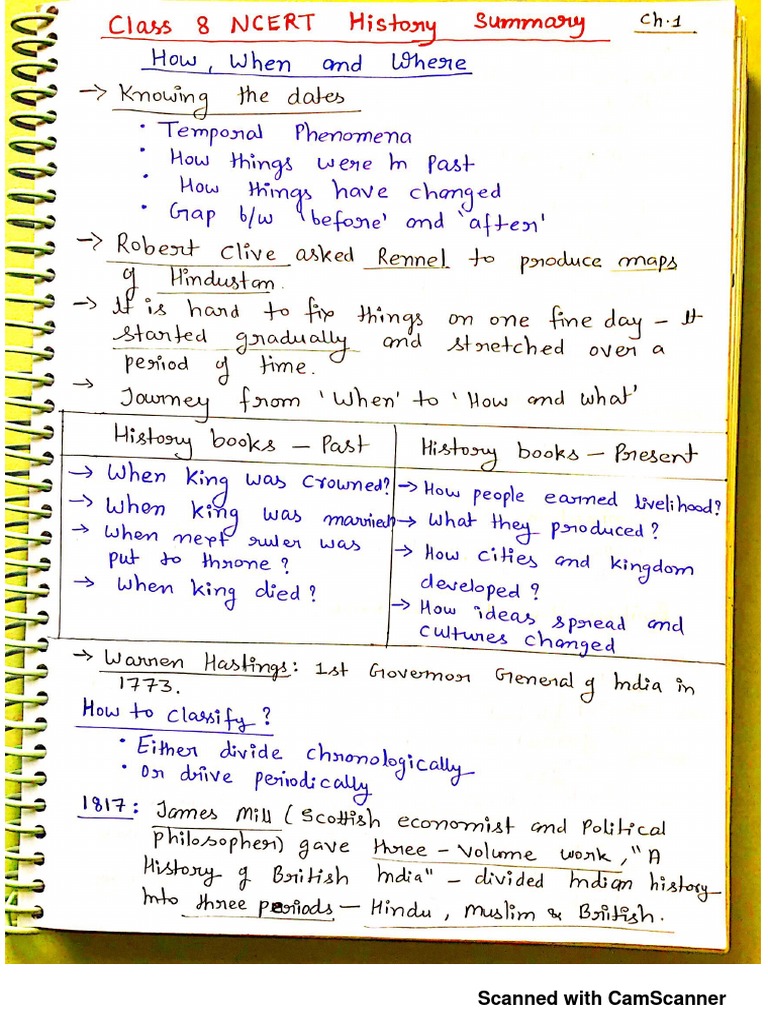 Class 8 NCERT History Summary Ch.1
How, When and Where
→ Knowing the dates
• Temporal Phenomena
• How things were In Past
• How things have changed
• Gap b/w 'before' and 'after'
→ Robert Clive asked Rennel to produce maps
of Hindustan.
→ It is hard to fix things on one fine day – It
started gradually and stretched over a
period of time.
→ Journey from 'When' to 'How and what'
History books – Past
→ When King was Crowned?
→ When king was married
→ When next ruler was
put to throne?
→ When king died?
History books – Present
→ How people earned livelihood?
→ What they produced?
→ How cities and kingdom
developed?
→ How ideas spread and
cultures changed
→ Warren Hastings: 1st Governor General of India in
1773.
How to classify?
• Either divide chronologically
• Or drive periodically
1817: James Mill (Scottish economist and Political
philosopher) gave three – volume work, "A
History of British India" – divided Indian history
Into three periods – Hindu, Muslim & British.
Scanned with CamScanner